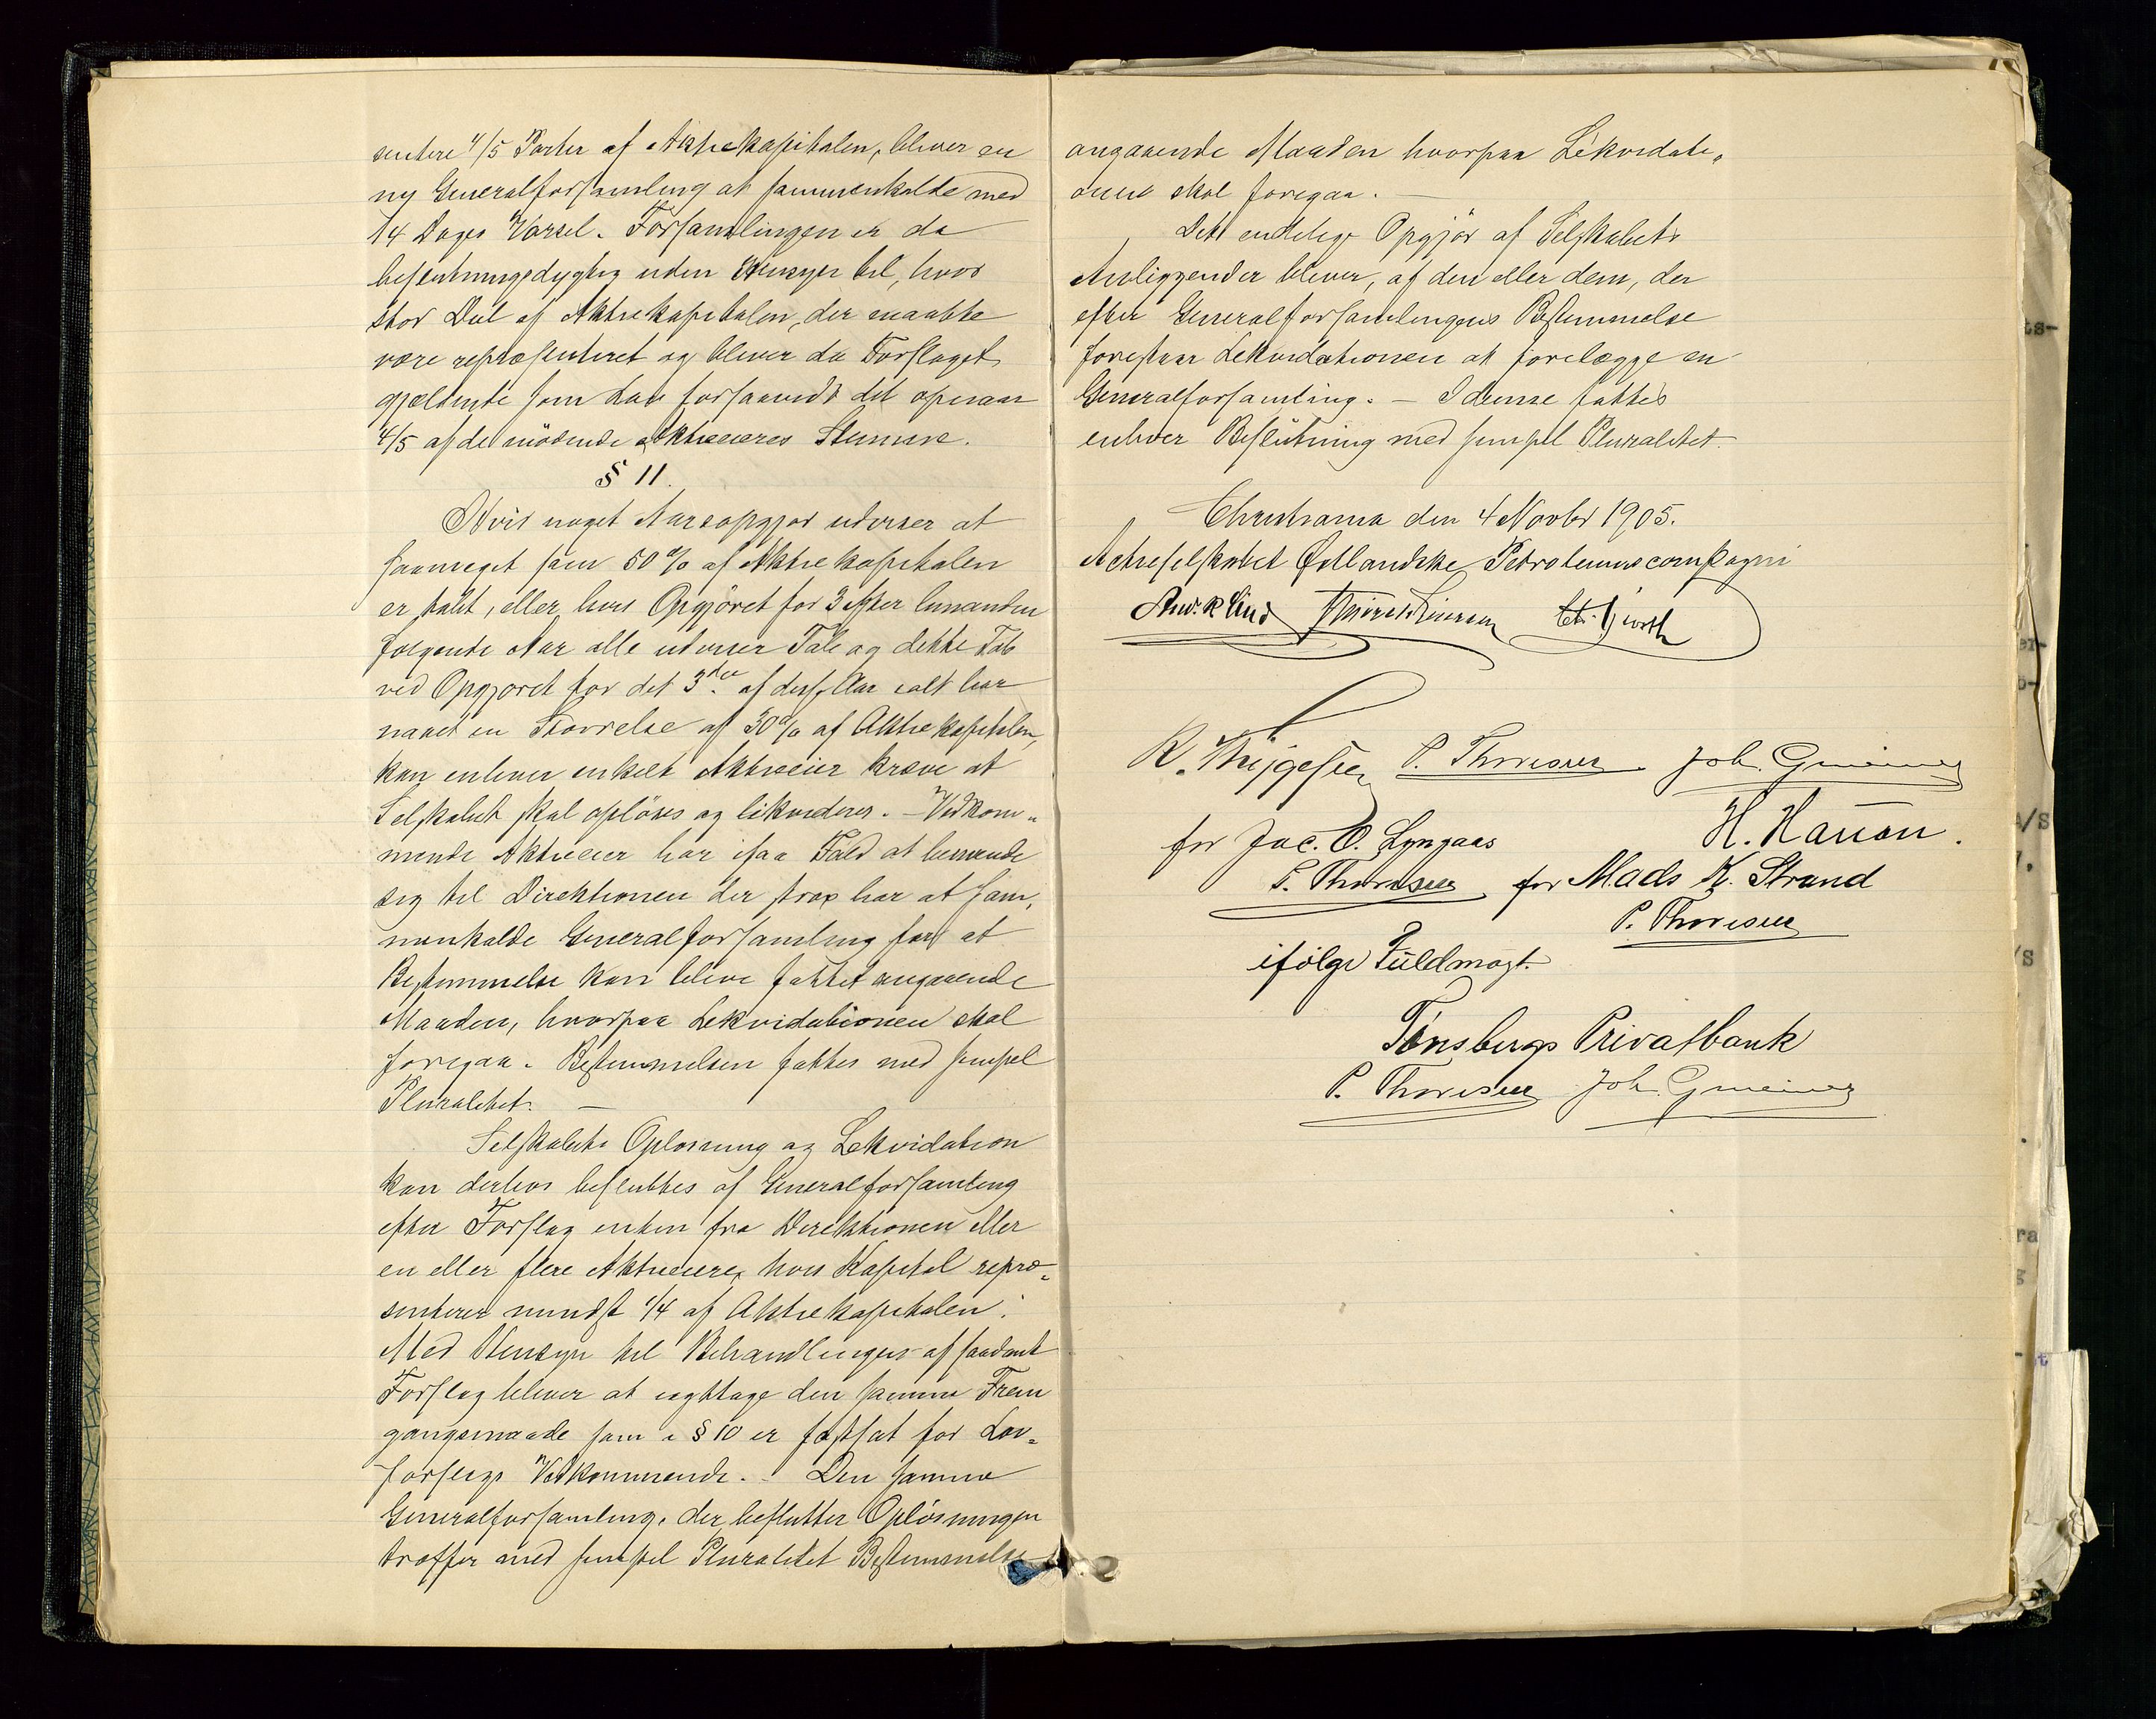 sentere 4/5 Parter af Aktiekapitalen, bliver en
ny Generalforsamling at sammenkalde med
14 Dages Varsel. Forsamlingen er da
beslutningsdygtig uden Hensyn til, hvor
stor Del af Aktiekapitalen, der maatte
være repræsenteret og bliver da Forslaget
gjældende som Lov forsaavidt det opnaar
4/5 af de mödende Aktieeieres Stemme.
§ 11.
Hvis noget Aarsopgjör udviser at
saameget som 50 % af Aktiekapitalen
er tabt, eller hvis Opgjöret for 3 efter hinanden
følgende Aar alle udviser Tab og dette Tab
ved Opgjoret for det 3die af disse Aar ialt har
naaet en Størrelse af 30 % af Aktiekapitalen,
kan enhver enkelt Aktieeier kræve at
Selskabet skal oplöses og likvideres. – Vedkom-
mende Aktieeier har isaa Fald at henvende
sig til Direktionen der strax har at sam,
menkalde Generalforsamling for at
Bestemmelse kan blive fattet angaaende
Maaden, hvorpaa Likvidationen skal
foregaa. Bestemmelsen fattes med simpel
Pluralitet. –
Selskabets Oplosning og Likvidation
kan derhos besluttes af Generalforsamling
efter Forslag enten fra Direktionen eller
en eller flere Aktieeiere, hvis Kapital repræ-
senterer mindst 1/4 af Aktiekapitalen.
Med Hensyn til Behandlingen af saadant
Forslag bliver at iagttage den samme Frem
gangsmaade som i § 10 er fastsat for Lov-
forslags Vedkommende. – Den samme
Generalforsamling, der beslutter Oplösningen
træffer med simpel Pluralitet Bestemmelse
angaaende Maaden hvorpaa Likvidati-
onen skal foregaa. –
Det endelige Opgjör af Selskabets
Anliggender bliver, af den eller dem, der
efter Generalforsamlingens Bestemmelse
forestaar Likvidationen at forelægge en
Generalforsamling. – I denne fattes
enhver Beslutning med simpel Pluralitet.
Christiania den 4 Novbr 1905.
Actieselskabet Østlandske Petroleumscompagni
And. R Lind
R. Thygesen P. Thoresen Joh. Grneiner
for Jac. O. Lyngaas H. Hanson.
P. Thoresen for Mads K. Strand
P. Thoresen
ifölge Fuldmagt.
Tønsbergs Privatbank
P. Thoresen Joh. Grneiner